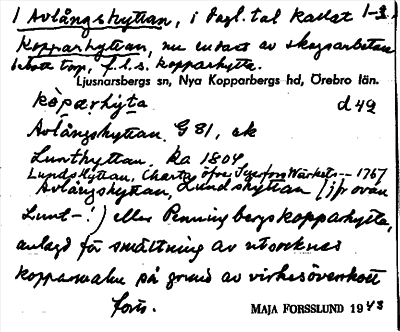 1 Avlångshyttan, i dagl. tal kallat 1-3.
Kopparhyttan, nu endast av skogsarbetare
bebott torp, f.d.s. kopparhytta.
Ljusnarsbergs sn, Nya Kopparbergs hd, Örebro län.
kòparhyta d49
Avlångshyttan G 81, ek
Lunthyttan. Ka 1804,
Lundshyttan, Charta öfver Wärket -- 1767
Avlångshyttan, Lundshyttan (jfr ovan
Lunt-!) eller Penningbergskopparhytta,
anlagd för smältning av
kopparmalm på grund av
forts.
MAJA FORSSLUND 1943